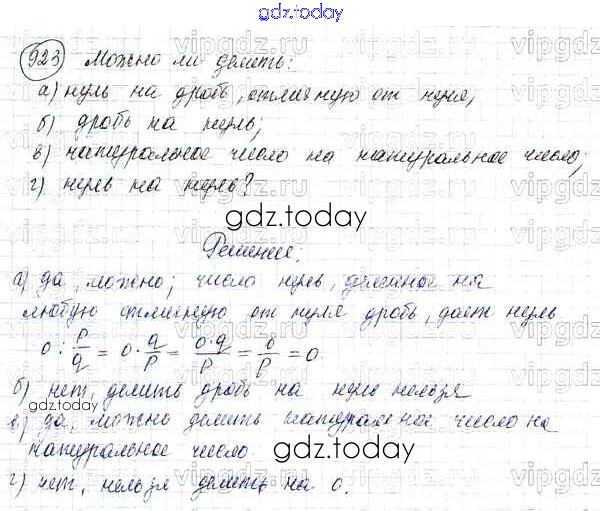 gdz.today
923 Можно ли делить:
а) нуль на дробь, отличную от нуля,
б) дробь на нуль,
в) натуральное число на натуральное число,
г) нуль на нуль?
gdz.today
Решение:
а) да, можно; число нуль, деленное на
любую отличную от нуля дробь, даёт нуль
0 : p/q = 0 · q/p = 0·q/p = 0/p = 0
б) нет, делить дробь на нуль нельзя
gdz.today
в) да, можно делить натуральное число на
натуральное число.
gdz.today
г) нет, нельзя делить на 0.
gdz.today